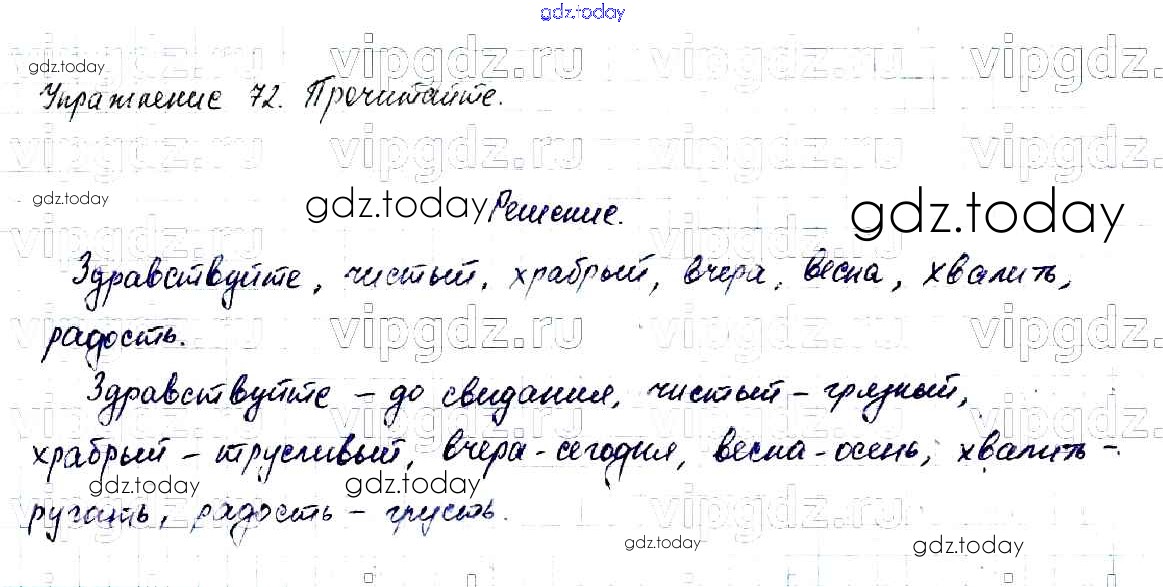 gdz.today
vipgdz.ru vipgdz.ru vipgdz.ru
gdz.today
Упражнение 72. Прочитайте.
vipgdz.ru vipgdz.ru vipgdz.ru
gdz.today
gdz.today Решение. gdz.today
Здравствуйте, чистый, храбрый, вчера, весна, хвалить,
vipgdz.ru vipgdz.ru vipgdz.ru
радость.
Здравствуйте – до свидания, чистый – грязный,
vipgdz.ru vipgdz.ru vipgdz.ru
храбрый – трусливый, вчера - сегодня, весна - осень, хвалить –
gdz.today gdz.today
ругать, радость – грусть.
vipgdz.ru vipgdz.ru vipgdz.ru
gdz.today gdz.today